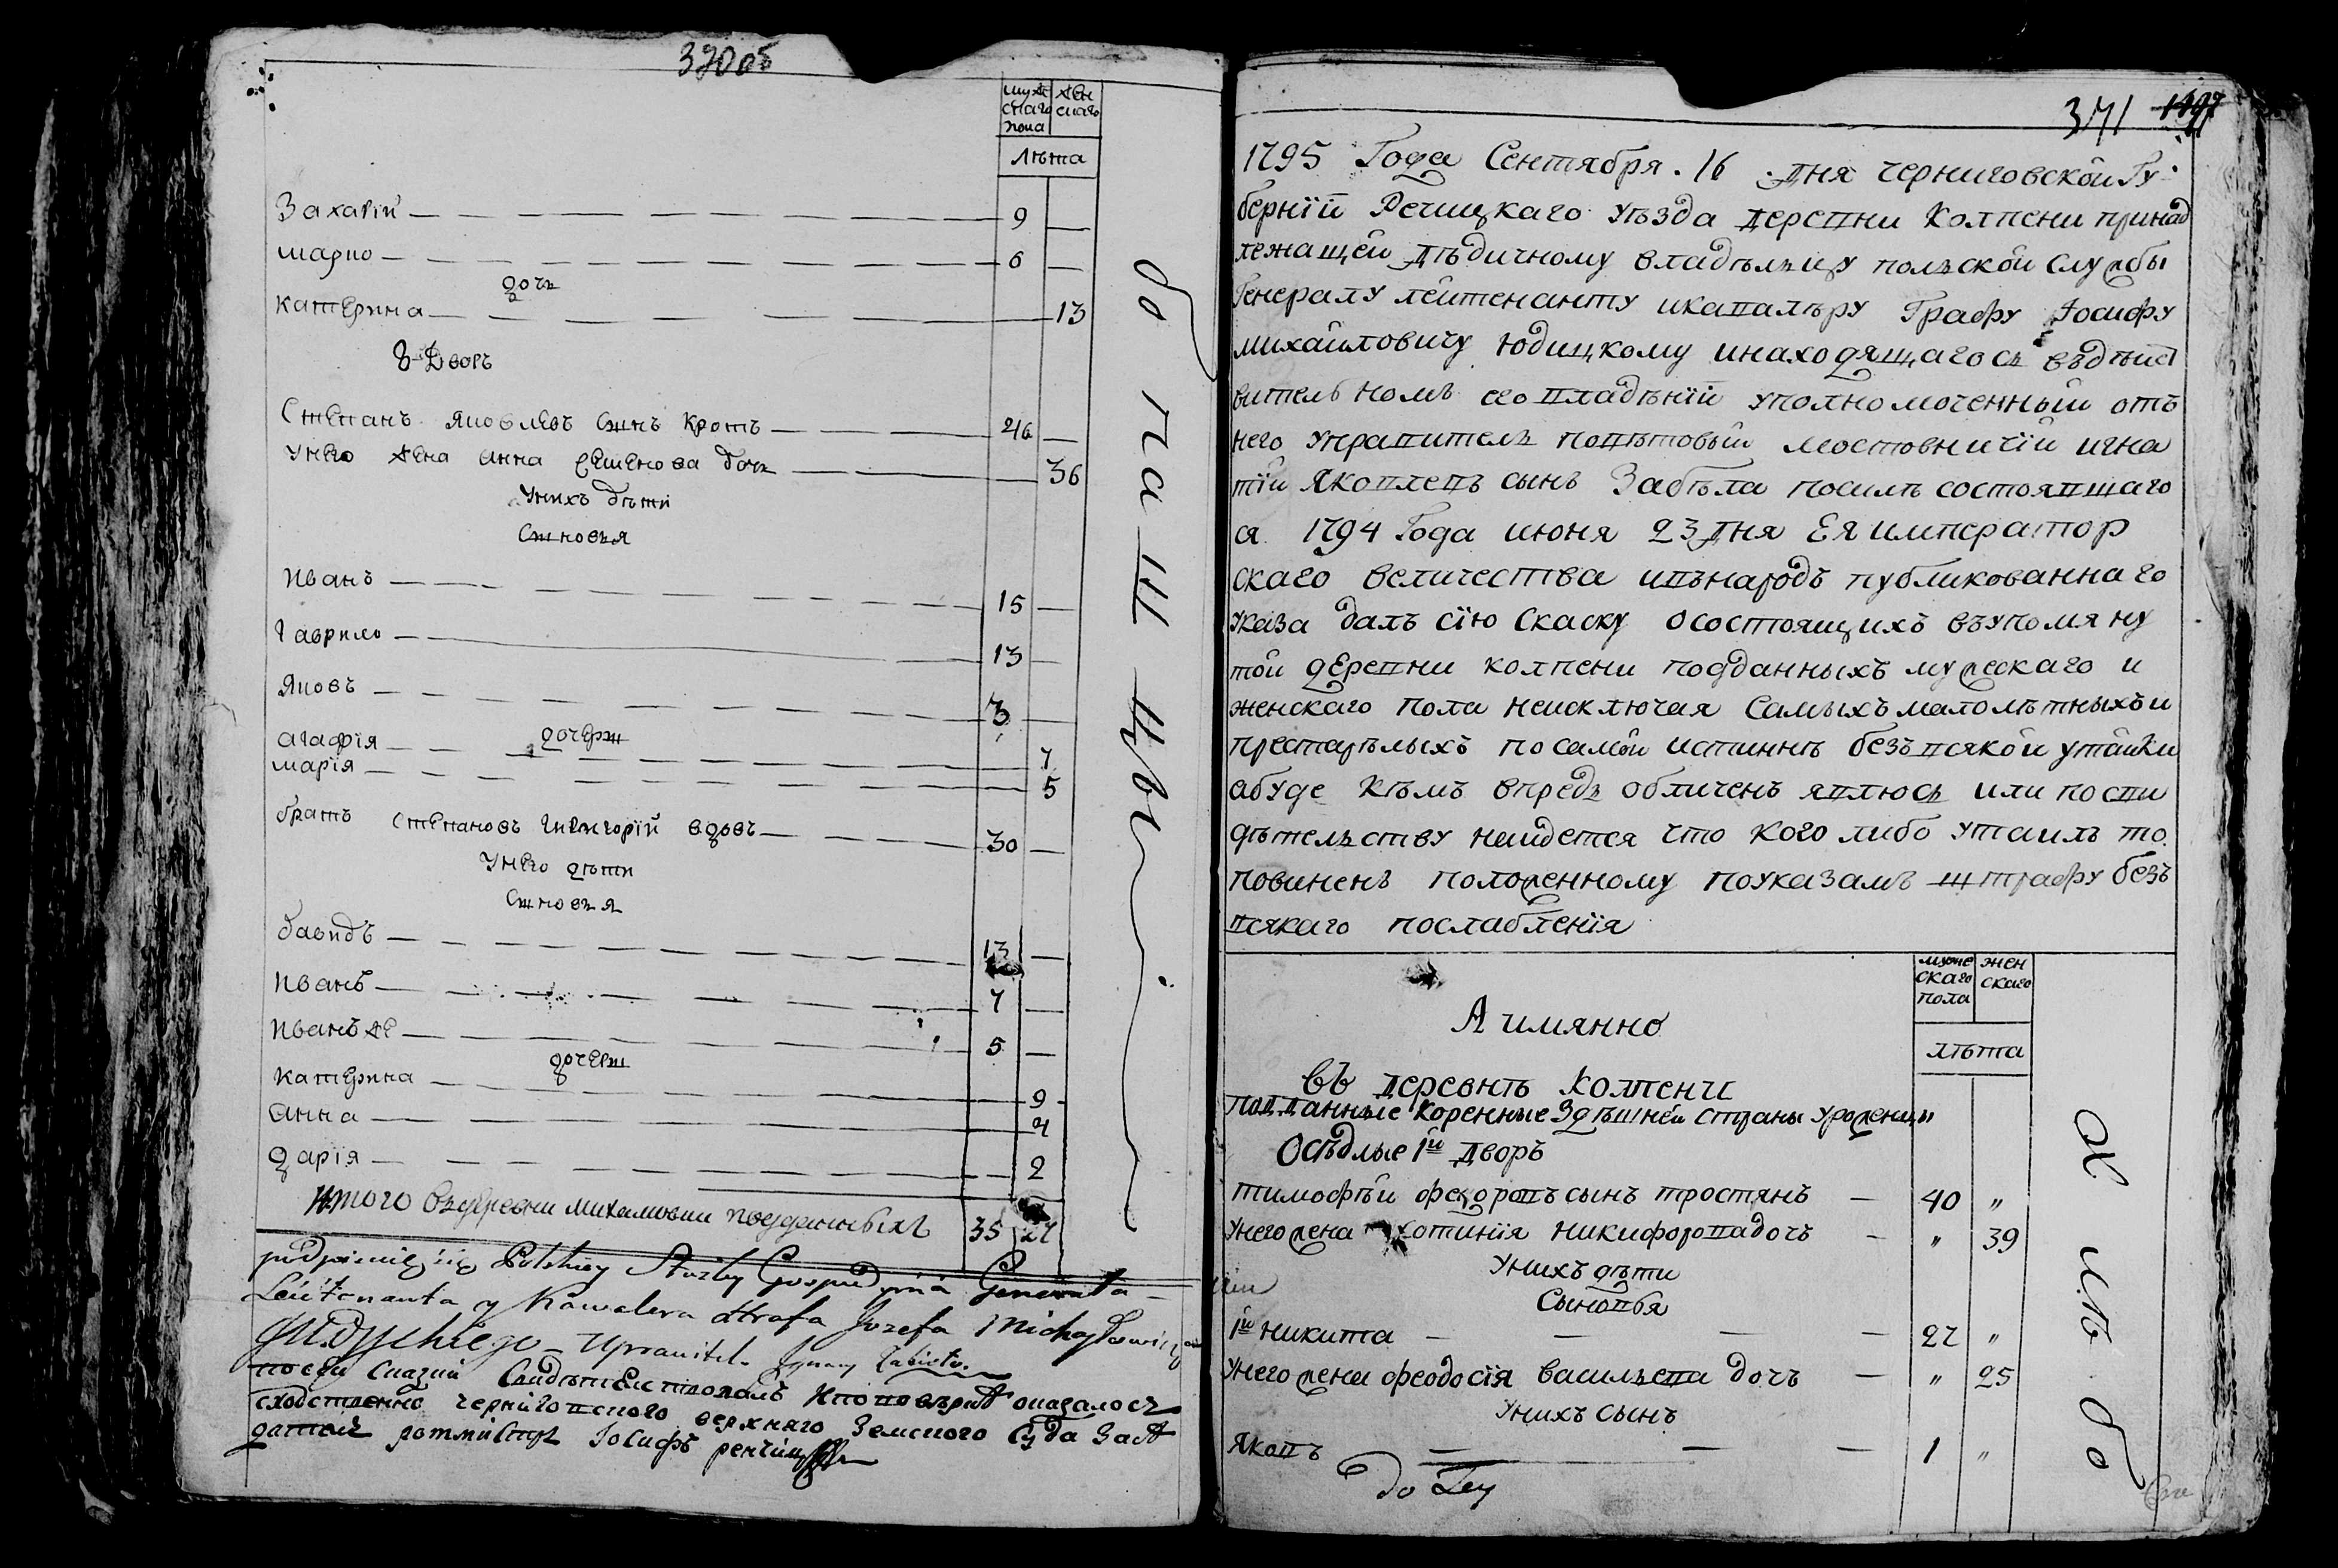 370об
муже
скаго
пола
жен
скаго
лѣта
Захарій 9
марко 6
дочь
катерина 13
8 Дворъ
Степанъ яковлевъ сынъ кротъ 46
унего жена анна семенова дочь 36
унихъ дѣти
сыновья
иванъ 15
гаврило 13
яковъ 3
дочери
агафія 7
марія 5
братъ степановъ григорій вдовъ 30
унего дѣти
сыновья
давидъ 13
иванъ 7
иванъ же 5
дочери
катерина 9
анна 4
дарія 2
итого въдеревни михаловки подданныхъ 35 27
Polskiey Służby Gospodyna Generała
Leitenanta y Kawalera Hrafa Jozefa Michayłowicza
Judyckiego Uprawitel Ignacy Zabieło
посей сказки свидѣтелствовалъ ипоповѣрке оказалось
сходственно черніговского верхняго земского суда засе
датель ротмистръ Іосифъ
бо
па
ш
цы
371
1795 Года Сентября 16 дня черниговской Гу
берній Речицкаго уѣзда деревни Колпени принад
лежащей дѣдичному владѣльцу польской службы
Генералу лейтенанту икавалѣру Графу Іосифу
михайловичу юдицкому инаходящагось въдѣйст
вительномъ его владѣній уполномоченный отъ
него управитель повѣтовый мостовничій игна
тій Яковлевъ сынъ Забѣла посилѣ состоявшаго
ся 1794 Года июня 23 дня Ея император
скаго величества ивънародъ публикованнаго
указа далъ сїю скаску осостоящихъ въупомяну
той деревни колпени подданныхъ мужескаго и
женскаго пола неисключая самыхъ малолѣтныхъ и
престарѣлыхъ посамой истиннѣ безъ всякой утайки
абуде кѣмъ впредь обличенъ явлюсь или посви
дѣтельству найдется что кого либо утаилъ то
повиненъ положенному поуказамъ штрафу безъ
всякаго послабленїя
муже
скаго
пола
жен
скаго
лѣта
А имянно
въ деревнѣ колпени
подданные коренные Здѣшней страны уроженцы
Осѣдлые 1й дворъ
тимофѣй федоровъ сынъ тростянъ 40 "
унего жена хотинія никифорова дочъ " 39
унихъ дѣти
сыновья
1й никита 22 "
унего жена феодосїя васильева дочъ " 25
унихъ сынъ
яковъ 1 "